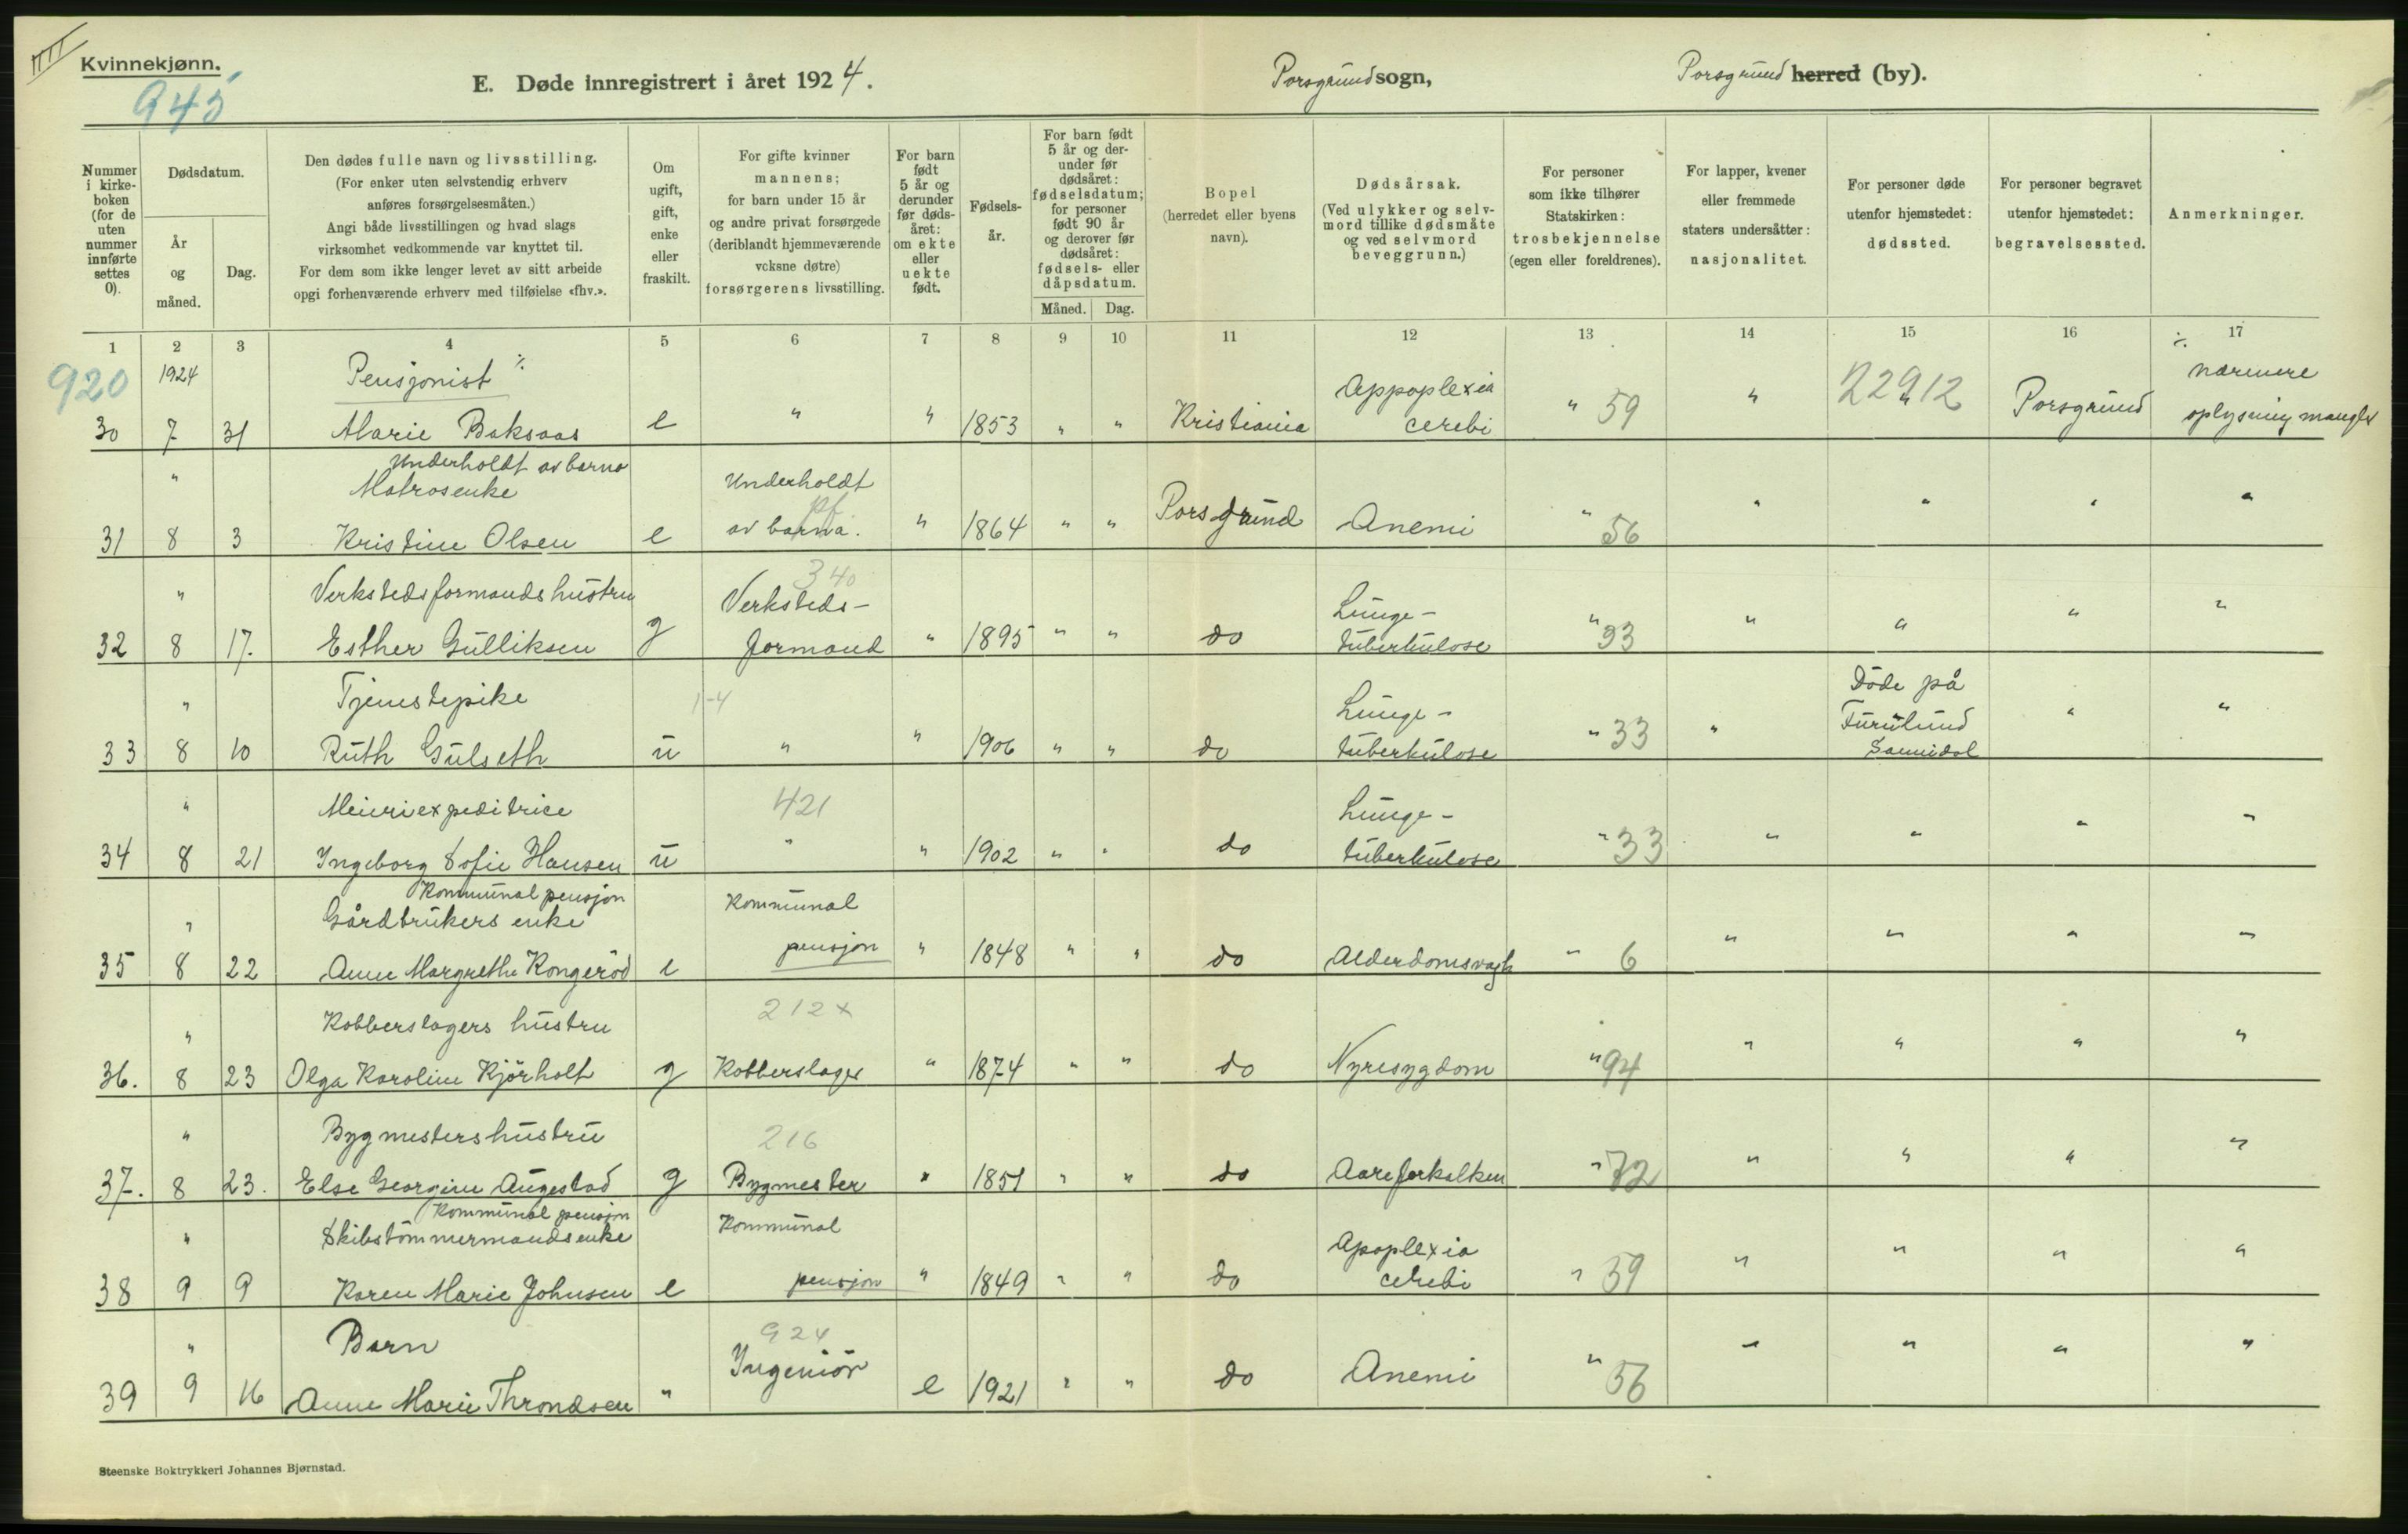 III
Kvinnekjønn.
945
E. Døde innregistrert i året 1924.
Porsgrund sogn,
Porsgrund herred (by).
Nummer i kirkeboken (for de uten nummer innførte settes 0).
Dødsdatum.
År og måned.
Dag.
Den dødes fulle navn og livsstilling.
(For enker uten selvstendig erhverv
anføres forsørgelsesmåten.)
Angi både livsstillingen og hvad slags
virksomhet vedkommende var knyttet til.
For dem som ikke lenger levet av sitt arbeide
opgi forhenværende erhverv med tilføielse «fhv.».
Om ugift, gift, enke eller fraskilt.
For gifte kvinner
mannens;
for barn under 15 år
og andre privat forsørgede
(deriblandt hjemmeværende
voksne døtre)
forsørgerens livsstilling.
For barn født 5 år og derunder før dødsåret: om ekte eller uekte født.
Fødselsår.
For barn født 5 år og derunder før dødsåret: fødselsdatum; for personer født 90 år og derover før dødsåret: fødsels- eller dåpsdatum.
Måned. Dag.
Bopel
(herredet eller byens
navn).
Dødsårsak.
(Ved ulykker og selvmord tillike dødsmåte og ved selvmord beveggrunn.)
For personer
som ikke tilhører
Statskirken:
trosbekjennelse
(egen eller foreldrenes).
For lapper, kvener
eller fremmede
staters undersåtter:
nasjonalitet.
For personer døde
utenfor hjemstedet:
dødssted.
For personer begravet
utenfor hjemstedet:
begravelsessted.
Anmerkninger.
1 2 3 4 5 6 7 8 9 10 11 12 13 14 15 16 17
920 1924 Pensjonist ⁒ Appoplexia 22912 ⁒ nærmere
30 7 31 Marie Baksaas e " " 1853 " " Kristiania cerebi " 59 " " Porsgrund oplysning mangler
Underholdt av barna
" Matrosenke Underholdt pf
31 8 3 Kristine Olsen e av barna. " 1864 " " Porsgrund Anemi " 56 " " " "
" Verkstedsformands hustru 340 Verksteds- Lunge-
32 8 17. Esther Gulliksen g formand " 1895 " " do tuberkulose " 33 " " " "
" Tjenestepike 1-4 Lunge- Døde på
33 8 10 Ruth Gulseth u " " 1906 " " do tuberkulose " 33 " Furulund " "
Sannidal
" Meieriexpeditrice 421 Lunge-
34 8 21 Ingeborg Sofie Hansen u " " 1902 " " do tuberkulose " 33 " " " "
Kommunal pensjon
" Gårdbrukers enke Kommunal
35 8 22 Anne Margrethe Kongerød e pensjon " 1848 " " do Alderdomsvagh " 6 " " " "
" Kobberslagers hustru 212x
36. 8 23 Olga Karoline Kjørholt g Kobberslager " 1874 " " do Nyresygdom " 94 " " " "
" Bygmesters hustru 216
37. 8 23. Else Georgine Augestad g Bygmester " 1851 " " do Aareforkalken " 72 " " " "
Kommunal pensjon
" Skibstømmermandsenke Kommunal Apoplexia
38 9 9 Karen Marie Johnsen e pensjon " 1849 " " do cerebi " 59 " " " "
" Barn 924
39 9 16 Anne Marie Throndsen " Ingeniør e 1921 " " do Anemi " 56 " " " "
Steenske Boktrykkeri Johannes Bjørnstad.